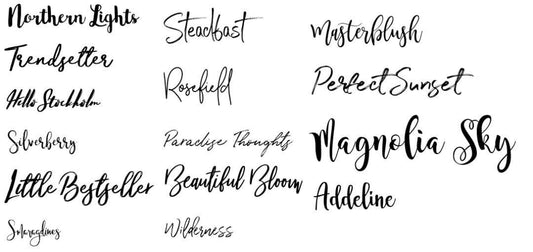 Northern Lights
Trendsetter
Hello Stockholm
Silverberry
Little Bestseller
Smaragdines
Steadfast
Rosefield
Paradise Thoughts
Beautiful Bloom
Wilderness
Masterblush
Perfect Sunset
Magnolia Sky
Addeline